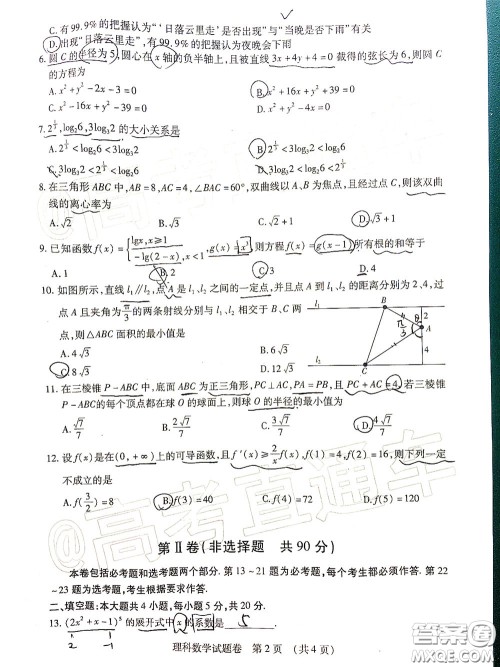 C. 有 99.9% 的把握认为“'日落云里走'是否出现”与“当晚是否下雨”有关
D. 出现“日落云里走”, 有 99.9% 的把握认为夜晚会下雨
6. 圆 C 的半径为 5, 圆心在 x 轴的负半轴上, 且被直线 3x+4y+4=0 截得的弦长为 6, 则圆 C
的方程为
A. x²+y²-2x-3=0 B. x²+16x+y²+39=0
C. x²-16x+y²-39=0 D. x²+y²-4x=0
7. log₂6, 3log₃2 的大小关系是
8. 在三角形 ABC 中, AB=8, AC=4, ∠BAC=60°, 双曲线以 A、B 为焦点, 且经过点 C, 则该双曲
线的离心率为
A. √2 B. √3 C. √2+1 D. √3+1
9. 已知函数 f(x)={lgx, x⩾1 -lg(2-x), x<1, g(x)=x³, 则方程 f(x)=g(x-1) 所有根的和等于
A. 1 B. 2 C. 3 D. 4
10. 如图所示, 直线 l₁∥l₂, 点 A 是 l₁、l₂ 之间的一定点, 并且点 A 到 l₁、l₂ 的距离分别为 2、4, 过
点 A 且夹角为 π/3 的两条射线分别与 l₁、l₂ 相交于 B、C 两
点, 则△ABC 面积的最小值是
A. 4√3 B. 6√3
C. 8√3 D. 12√3
l₁ B
θ
4 2
π/3 A
4
l₂ C
11. 在三棱锥 P-ABC 中, 底面 ABC 为正三角形, PC⊥AC, PA=PB, 且 PC+AC=4. 若三棱锥
P-ABC 的每个顶点都在球 O 的球面上, 则球 O 的半径的最小值为
A. √7/7 B. 2√7/7 C. 3√7/7 D. 4√7/7
12. 设 f(x) 是在(0,+∞)上的可导函数, 且 f'(x)⩾2/x f(x), f(2)=4, f(4)=16, 则下列一定
不成立的是
A. f(3/2)=8 B. f(3)=40 C. f(4)=54 D. f(5)=120
第Ⅱ卷(非选择题 共 90 分)
本卷包括必考题和选考题两个部分. 第 13~21 题为必考题, 每个考生都必须作答. 第 22
~23 题为选考题, 考生根据要求作答.
二、填空题: 本大题共 4 小题, 每小题 5 分, 共 20 分.
13. (2x²+x-1)⁵ 的展开式中 x 的系数是 5.
2 -1
理科数学试题卷 第 2 页 (共 4 页)
@高考直通车